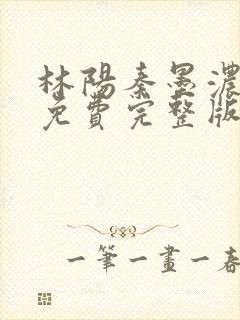 林陽秦墨濃
免費完整版
一筆一畫一春